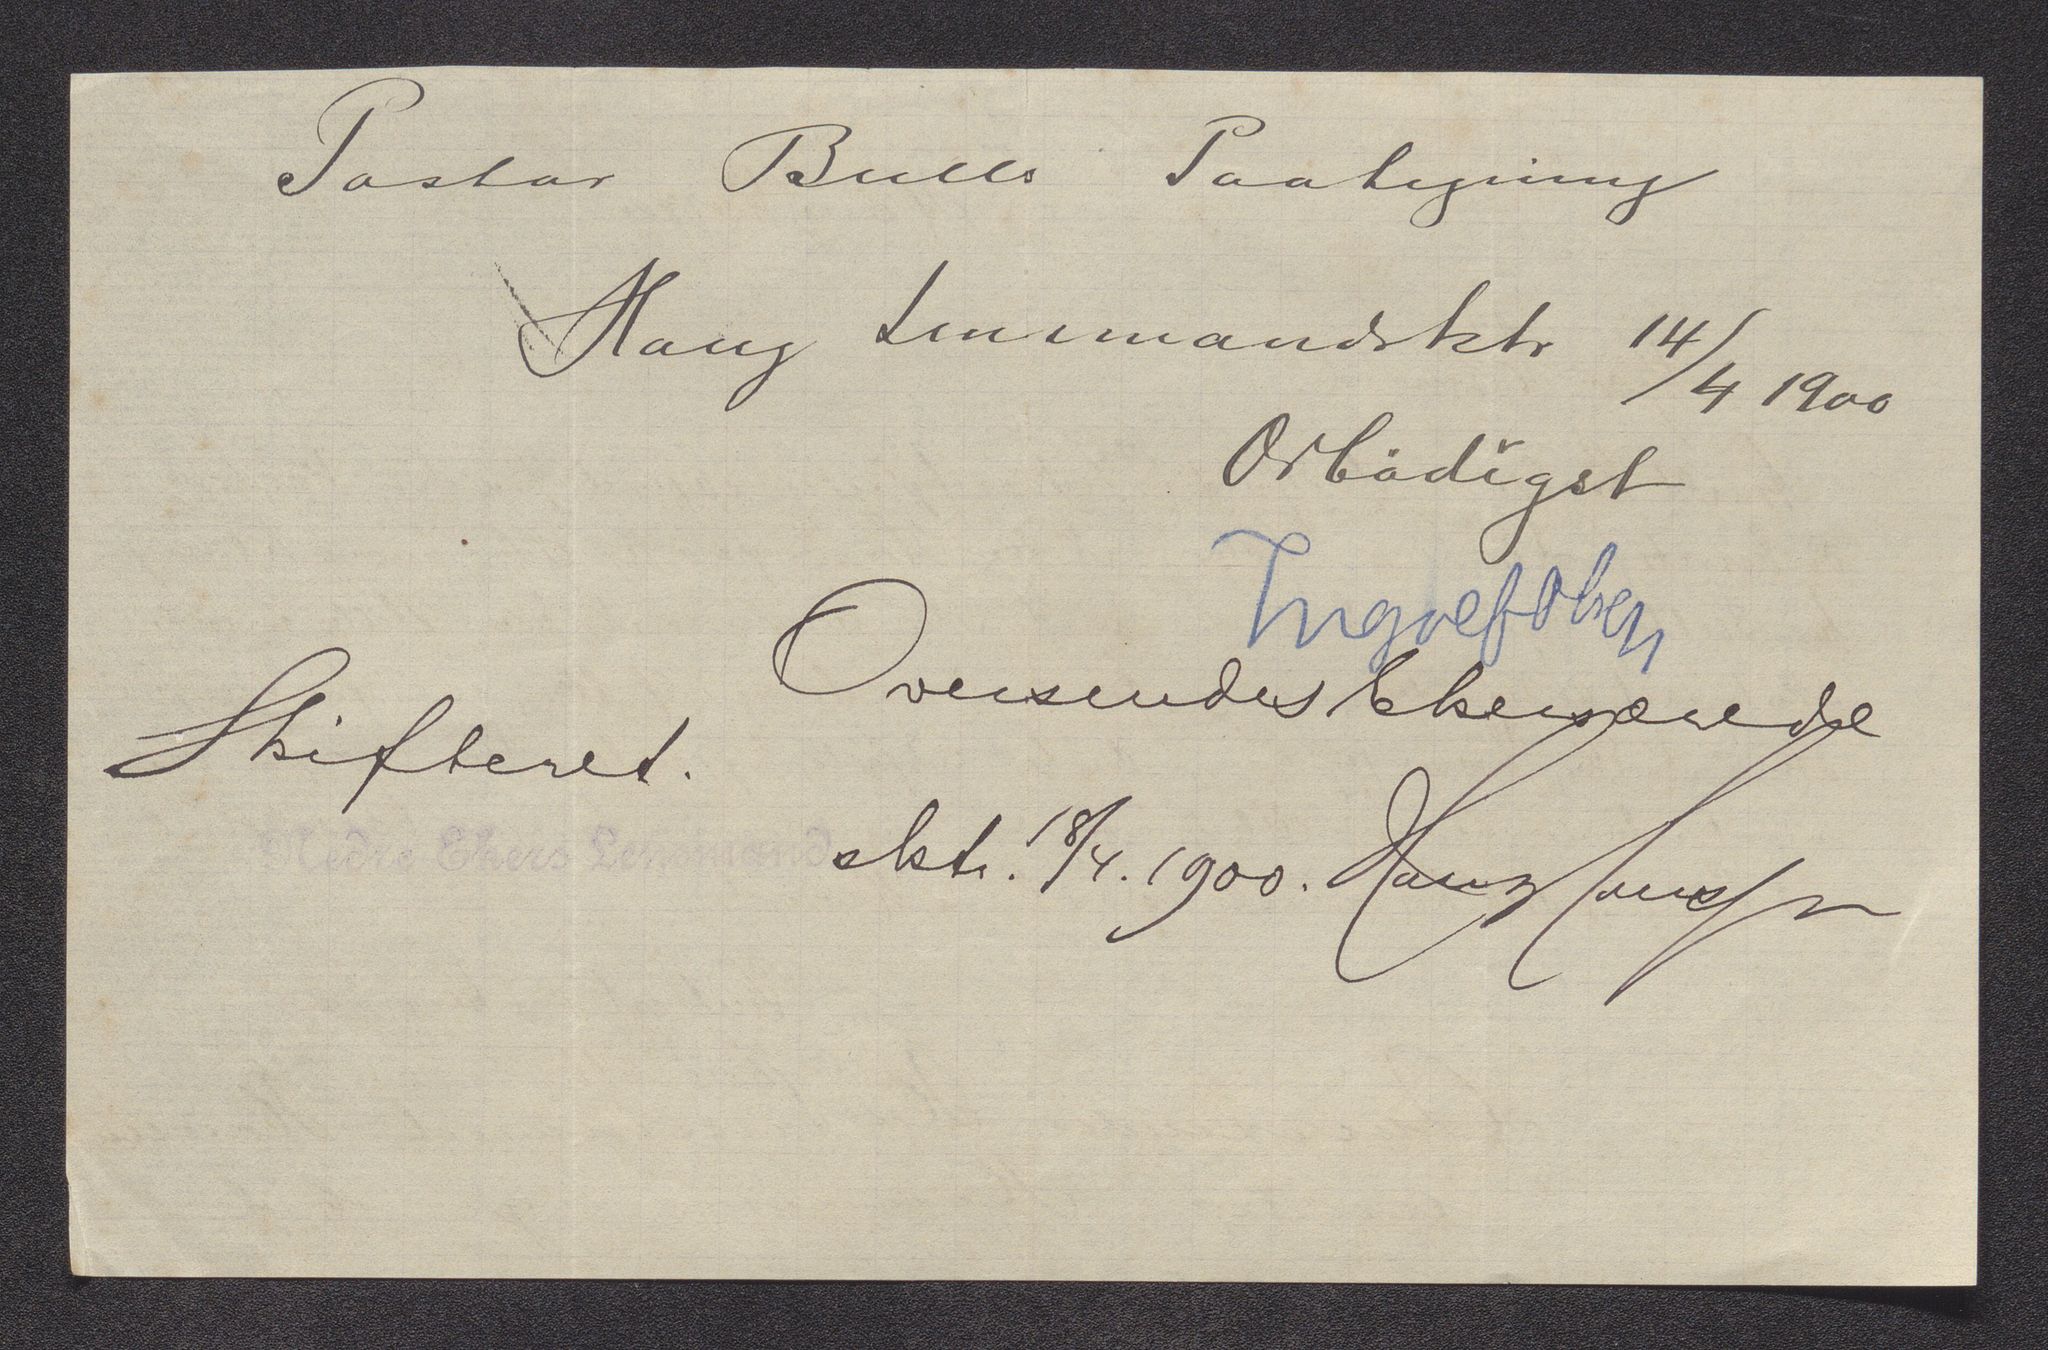 Pastor Bulls Paategning
Haug Lensmandsktr 14/4 1900
Ærbødigst
Ingvolf Olsen
Oversendes tekenværede
Skifteret.
Nedre Ekers Lensmand
sktr. 18/4. 1900. Hans Hansen